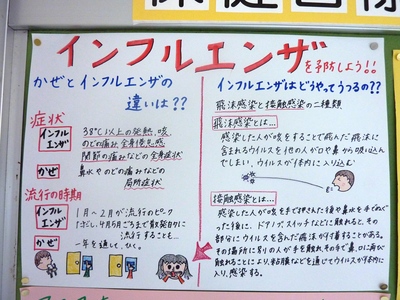 インフルエンザを予防しよう!!
かぜとインフルエンザの
違いは??
症状
インフルエンザ
38℃以上の発熱、咳
のどの痛み、全身倦怠感
関節の痛みなどの全身症状
かぜ
鼻水やのどの痛みなどの
局所症状
流行の時期
インフルエンザ
1月~2月が流行のピーク
ただし、4月5月ごろまで散発的に
流行することも…
かぜ
一年を通して、ひく。
インフルエンザはどうやってうつるの??
飛沫感染と接触感染の二種類
飛沫感染とは…
感染した人が咳をすることで飛んだ飛沫に
含まれるウイルスを他の人が口や鼻から吸い込ん
でしまい、ウイルスが体内に入り込む
接触感染とは…
感染した人が咳を手で押さえた後や鼻水を手でぬぐ
った後に、ドアノブ、スイッチなどに触れると、その
部分にウイルスを含んだ飛沫が付着することがある。
その場所に別の人が手を触れ、その手で鼻、口に再び
触れることにより、粘膜などを通じてウイルスが体内に
入り、感染する。